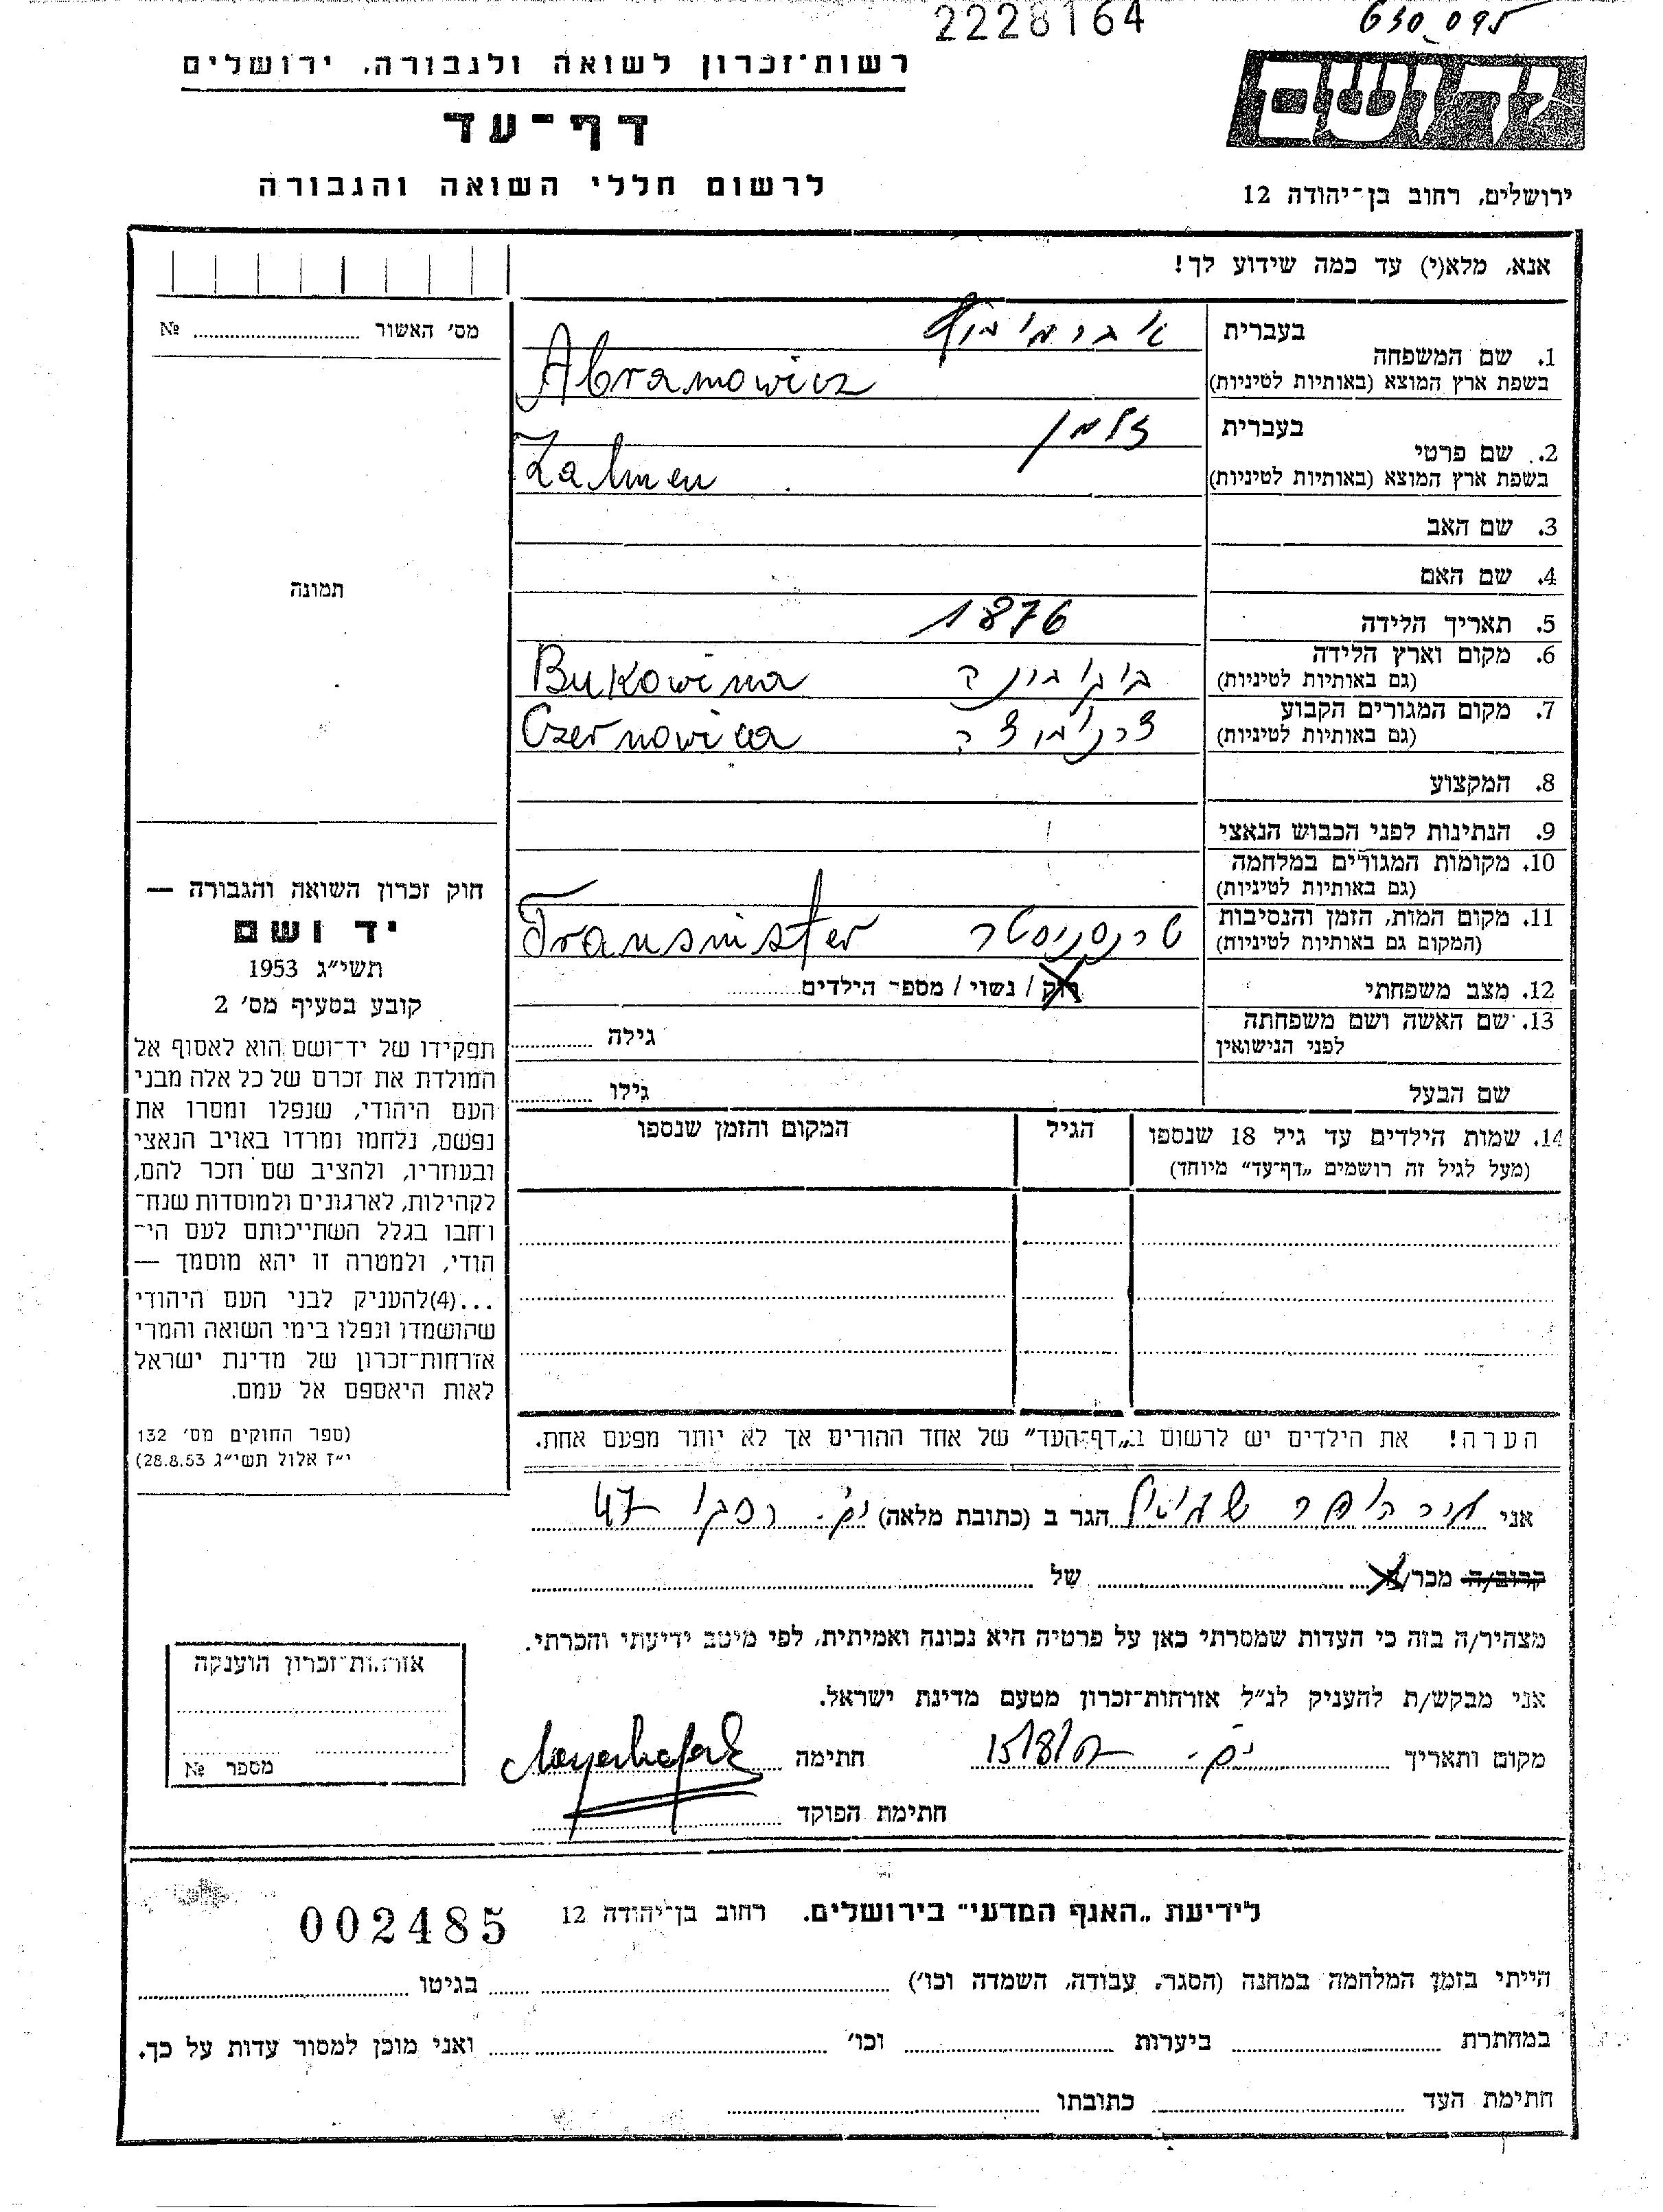 2228164
630 095
רשות־זכרון לשואה ולגבורה, ירושלים
יד ושם
דף־עד
לרשום חללי השואה והגבורה
ירושלים, רחוב בן־יהודה 12
אנא, מלא(י) עד כמה שידוע לך!
מס׳ האשור № 
תמונה
חוק זכרון השואה והגבורה —
יד ושם
תשי״ג 1953
קובע בסעיף מס׳ 2
תפקידו של יד־ושם הוא לאסוף אל
המולדת את זכרם של כל אלה מבני
העם היהודי, שנפלו ומסרו את
נפשם, נלחמו ומרדו באויב הנאצי
ובעוזריו, ולהציב שם וזכר להם,
לקהילות, לארגונים ולמוסדות שנח־
רחבו בגלל השתייכותם לעם הי־
הודי, ולמטרה זו יהא מוסמך —
...(4)להעניק לבני העם היהודי
שהושמדו ונפלו בימי השואה והמרי
אזרחות־זכרון של מדינת ישראל
לאות היאספם אל עמם.
(ספר החוקים מס׳ 132
י״ז אלול תשי״ג 28.8.53)
בעברית אברמוביץ
1. שם המשפחה
בשפת ארץ המוצא (באותיות לטיניות) Abramowicz
בעברית זלמן
2. שם פרטי
בשפת ארץ המוצא (באותיות לטיניות) Zalmen
3. שם האב
4. שם האם
5. תאריך הלידה 1876
6. מקום וארץ הלידה בוקובינה Bukowina
(גם באותיות לטיניות)
7. מקום המגורים הקבוע Czernowica
(גם באותיות לטיניות)
8. המקצוע
9. הנתינות לפני הכבוש הנאצי
10. מקומות המגורים במלחמה
(גם באותיות לטיניות)
11. מקום המות, הזמן והנסיבות טרנסניסטר Transnister
(המקום גם באותיות לטיניות)
12. מצב משפחתי רוק / נשוי / מספר הילדים
13. שם האשה ושם משפחתה גילה
לפני הנישואין
שם הבעל גילו
14. שמות הילדים עד גיל 18 שנספו הגיל המקום והזמן שנספו
(מעל לגיל זה רושמים „דף־עד״ מיוחד)
הערה! את הילדים יש לרשום ב„דף־העד״ של אחד ההורים אך לא יותר מפעם אחת.
אני מירהופר שמואל הגר ב (כתובת מלאה) 47
קרוב/ה מכר/ה של
מצהיר/ה בזה כי העדות שמסרתי כאן על פרטיה היא נכונה ואמיתית, לפי מיטב ידיעתי והכרתי.
אני מבקש/ת להעניק לנ״ל אזרחות־זכרון מטעם מדינת ישראל.
מקום ותאריך חתימה
חתימת הפוקד
אזרחות־זכרון הוענקה
מספר №
לידיעת „האגף המדעי״ בירושלים. רחוב בן־יהודה 12 002485
הייתי בזמן המלחמה במחנה (הסגר, עבודה, השמדה וכו׳) בגיטו
במחתרת ביערות וכו׳ ואני מוכן למסור עדות על כך.
חתימת העד כתובתו